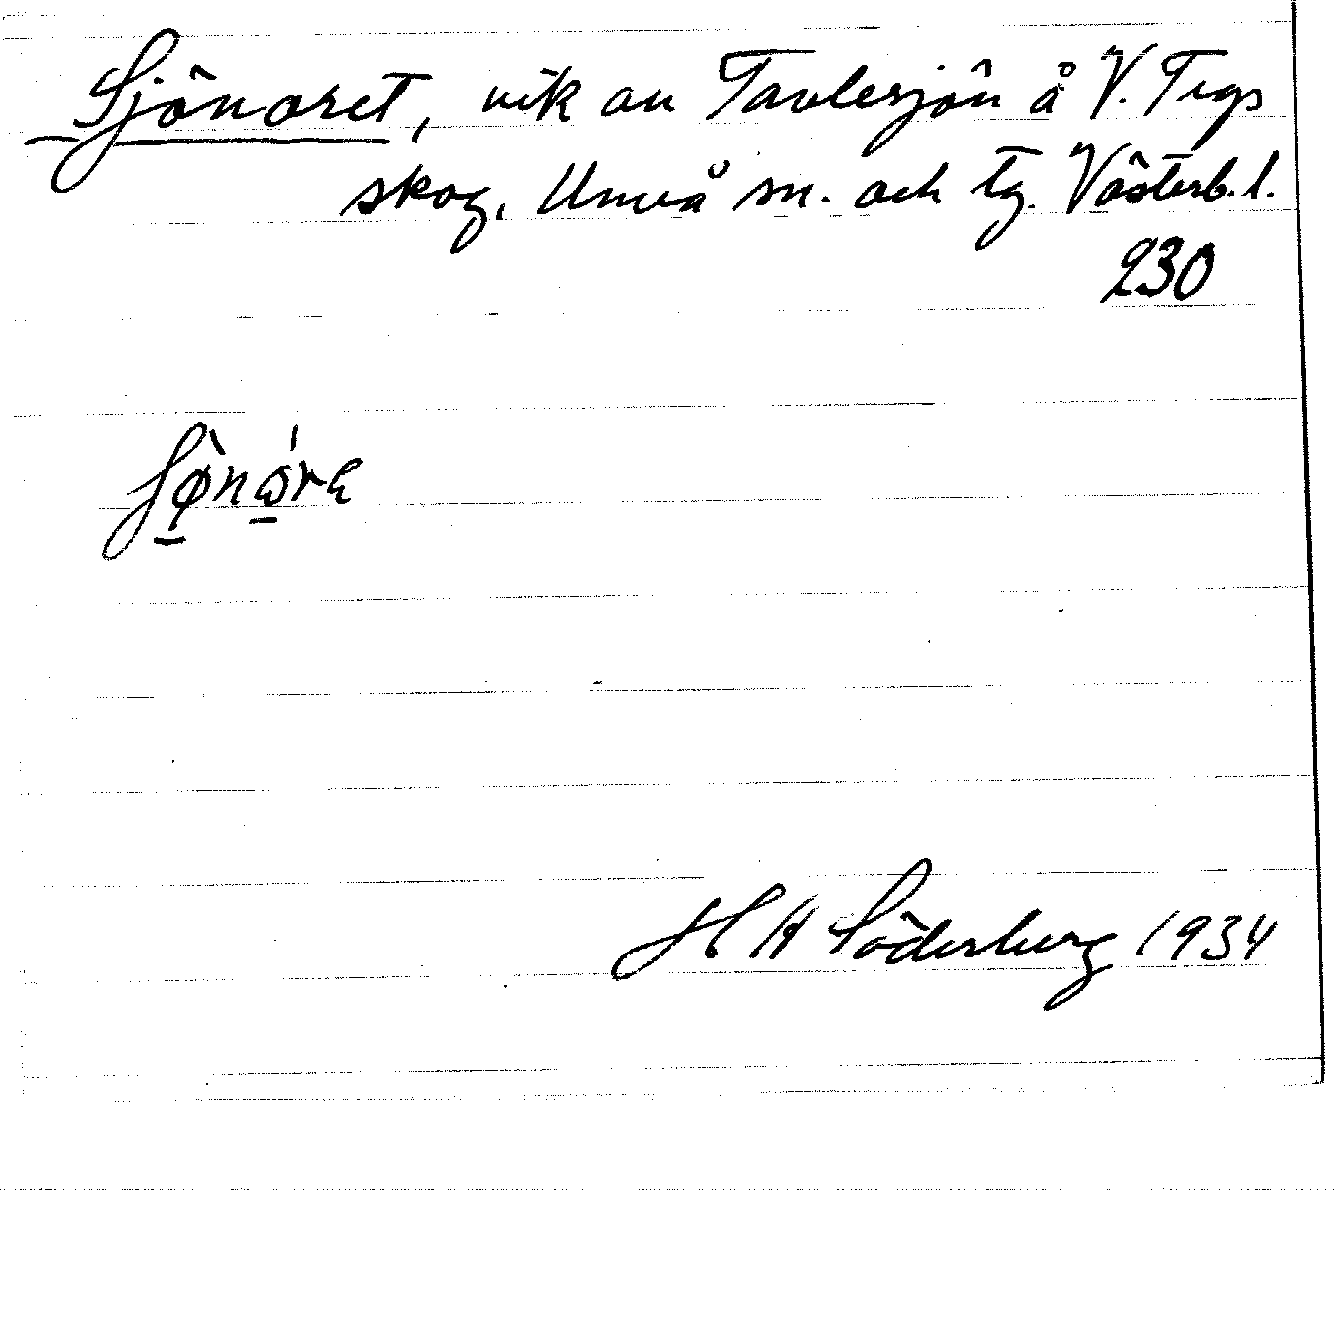 Sjönoret, vik av Tavlesjön å V. Tegs
skog, Umeå sn. och tg. Västerb. l.
230
H H Söderberg 1934